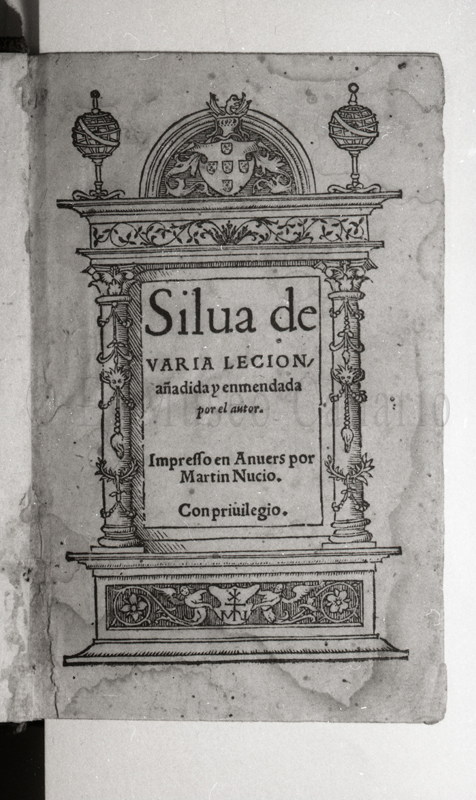 Silua de
VARIA LECION,
añadida y enmendada
por el autor.
Impresso en Anuers por
Martin Nucio.
Con priuilegio.
MN